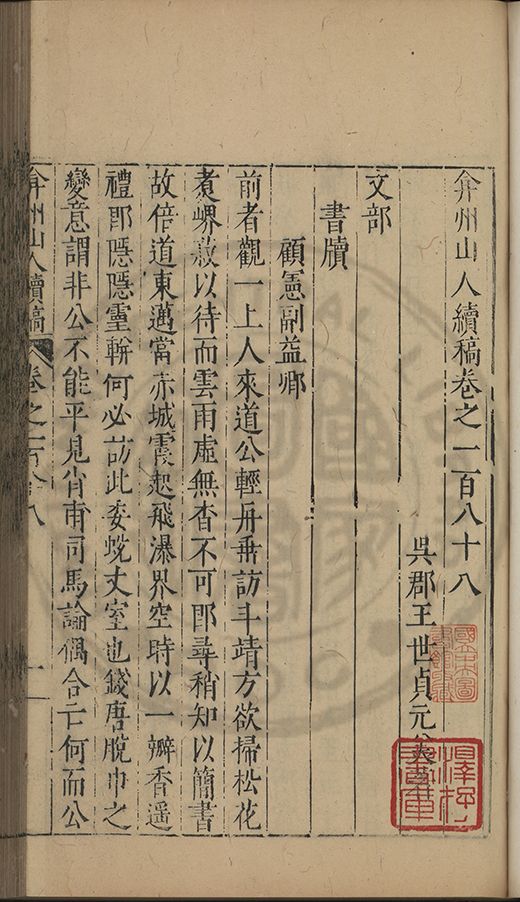 弇州山人續稿卷之一百八十八
吳郡王世貞元美著
文部
書牘
顧憲副益卿
前者觀一上人來道公輕舟垂訪斗靖方欲掃松花
煑𪩘蕨以待而雲雨虛無杳不可卽尋稍知以簡書
故倍道東邁當赤城霞起飛瀑界空時以一瓣香遥
禮卽隱隱靈軿何必訪此委蛻丈室也錢唐脫巾之
變意謂非公不能平見肖甫司馬論偶合亡何而公
弇州山人續稿
卷之一百八十八
一
國立中央圖書館收藏
澤存書庫